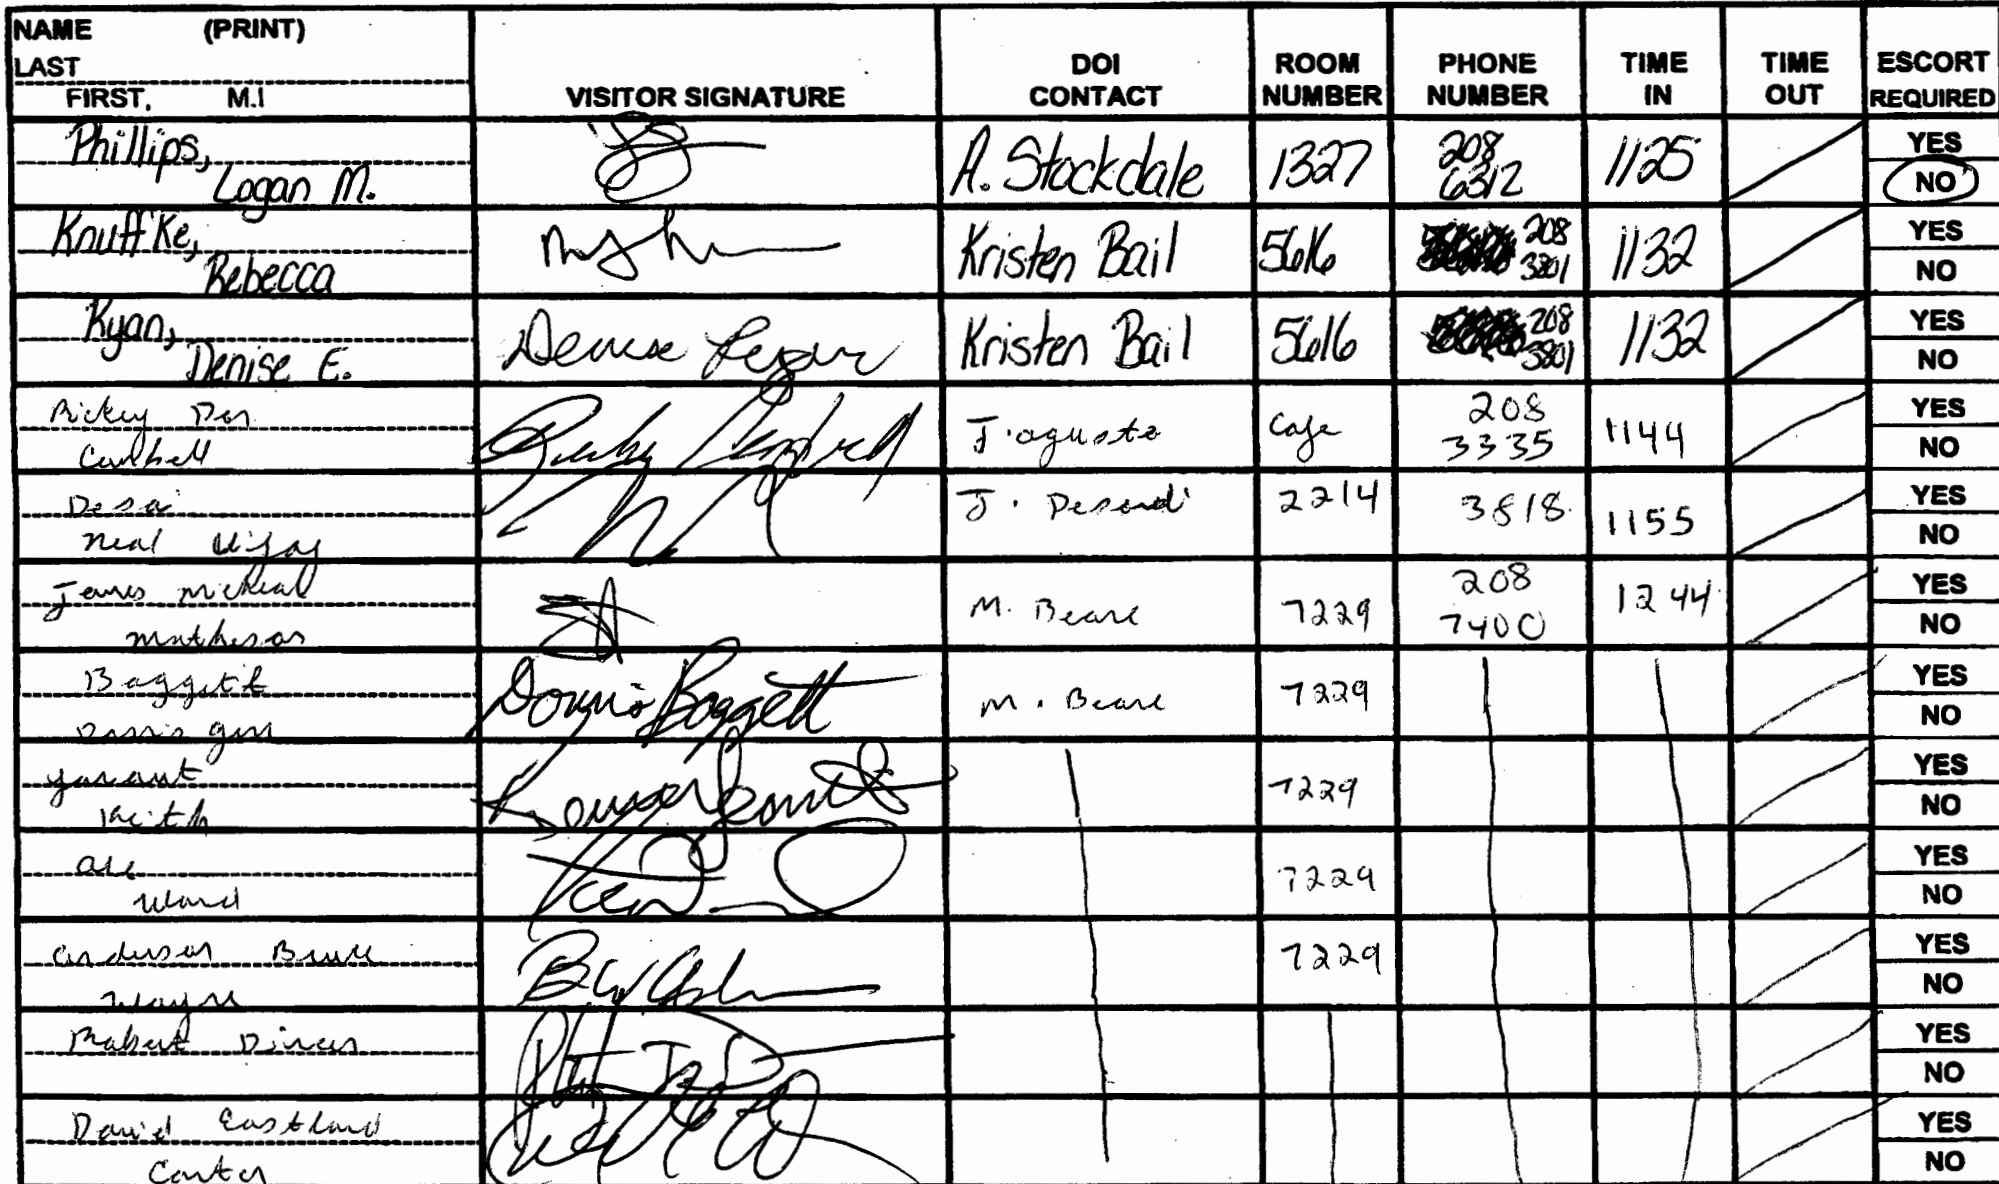 NAME (PRINT)
LAST
FIRST, M.I
VISITOR SIGNATURE
DOI
CONTACT
ROOM
NUMBER
PHONE
NUMBER
TIME
IN
TIME
OUT
ESCORT
REQUIRED
Phillips,
Logan M.
A. Stockdale
1327
208
6312
1125
YES
NO
Knuffke,
Rebecca
Kristen Bail
5616
208
3801
1132
YES
NO
Denise E.
Denise
Kristen Bail
5616
208
3801
1132
YES
NO
Rickey
J. agusta
Cafe
208
3335
1144
YES
NO
Desai
Neal Vijay
J.
2214
3818
1155
YES
NO
James micheal
matheson
M. Beare
7229
208
7400
1244
YES
NO
Baggett
Donnis Baggett
M. Beare
7229
YES
NO
Keith
7229
YES
NO
Ward
7229
YES
NO
anderson Bruce
wayne
7229
YES
NO
Robert
YES
NO
David Eastland
Carter
YES
NO